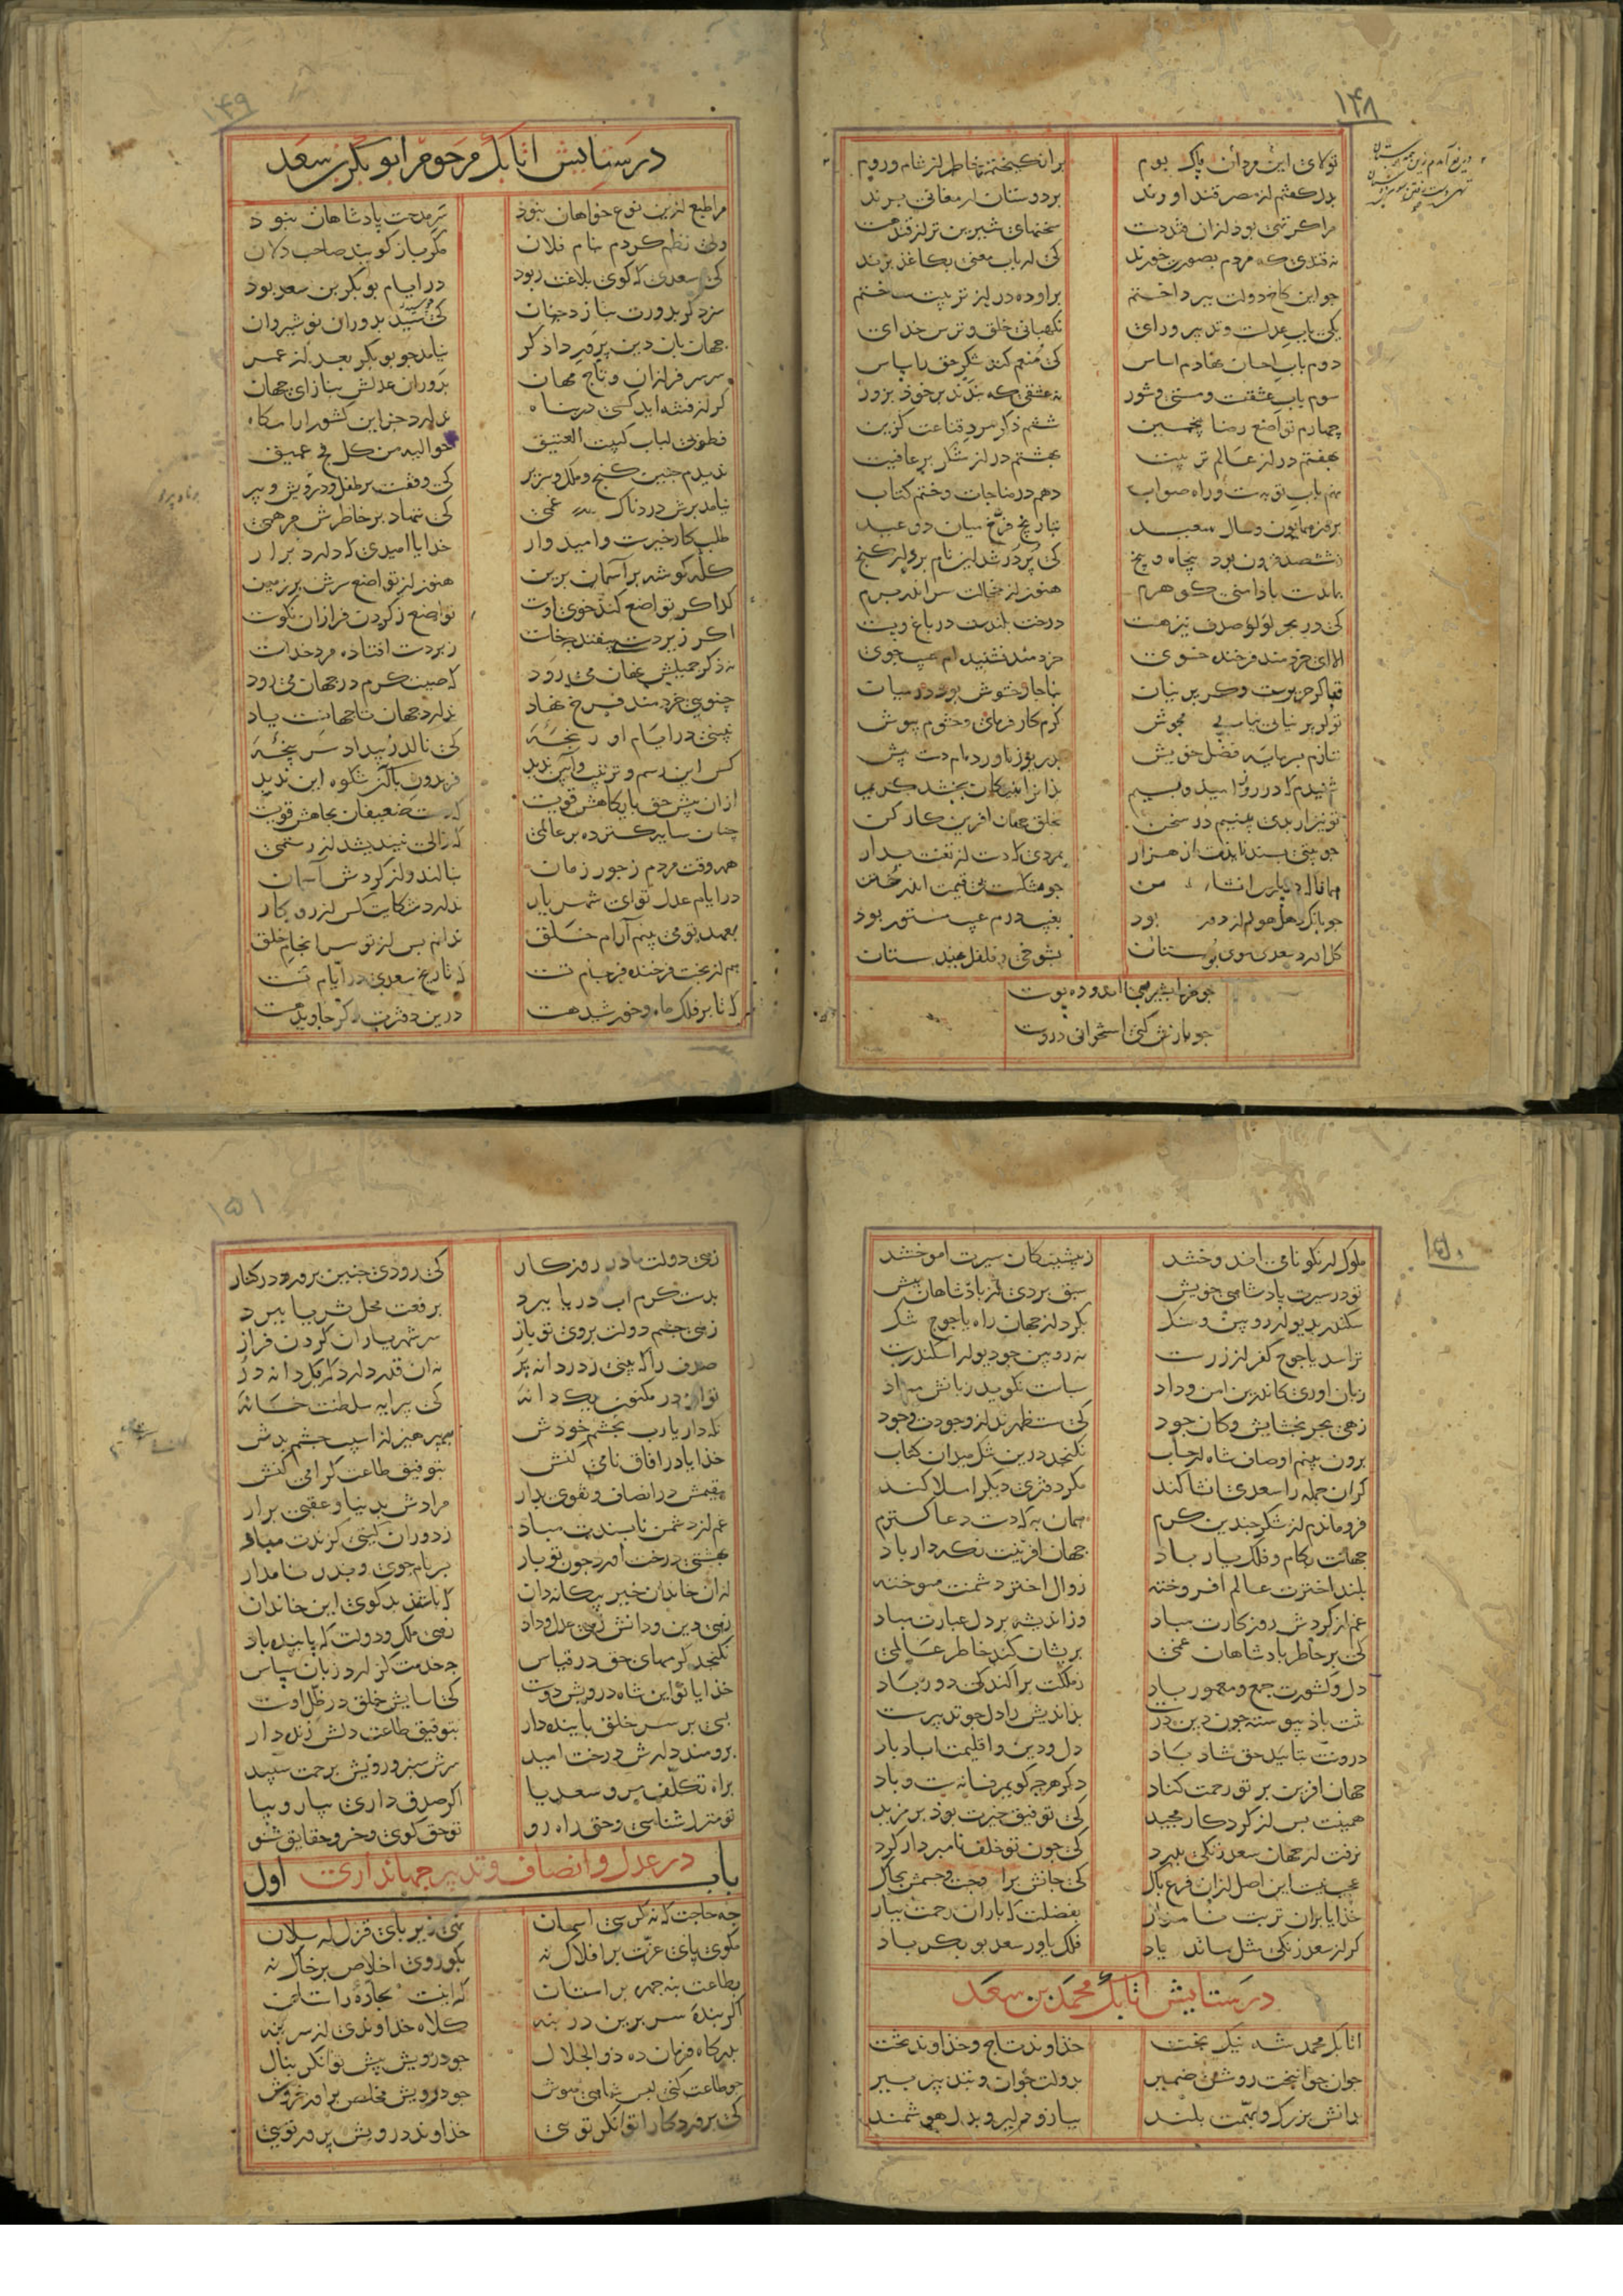 ۱۴۸
تولای این مردان پاک بوم برانکیختم خاطر از شام و روم
بدل کفتم از مصر قند آورند بر دوستان ارمغانی برند
مرا کر تهی بود از ان قند دست سخنهای شیرین تر از قند هست
نه قندی که مردم بصورت خورند کی ارباب معنی بکاغذ برند
جو این کاخ دولت بپرداختم برو ده در از تربیت ساختم
یکی باب عدلست و تدبیر و رای نکهبانی خلق و ترس خدای
دوم باب احسان نهادم اساس کی منعم کند شکر حق را سپاس
سوم باب عشقست و مستی و شور نه عشقی که بندند بر خوذ بزور
چهارم تواضع رضا پنجمین ششم ذکر مرد قناعت کزین
بهفتم در از عالم تربیت بهشتم در از شکر بر عافیت
نهم باب توبه ست و راه صواب دهم در مناجات و ختم کتاب
بروز همایون و سال سعید بتاریخ فرخ میان دو عید
ز ششصد فزون بود پنجاه و پنج کی پر در شد این نام بردار کنج
بماندست با دامنی کوهرم هنوز از خجالت سر اندر برم
کی در بحر لؤلؤ صدف نیز هست درخت بلندست در باغ و پست
الا ای خردمند فرخنده خوی خردمند نشنیده ام عیب جوی
قبا کر حریرست و کر پرنیان بناجار حشوش بود در میان
تو کر پرنیانی نیابی مجوش کرم کار فرمای و حشوم بپوش
ننازم بسرمایه فضل خویش بدریوزه آورده ام دست پیش
شنیدم که در روز امید و بیم بدانرا بنیکان ببخشد کریم
تو نیز ار بدی بینیم در سخن بخلق جهان افرین کار کن
جو بیتی پسند آیدت از هزار بمردی که دست از تعنت بدار
همانا که در پارس انشاء من جو مشکست بی قیمت اندر ختن
جو بانک دهل هولم از دور بود بغیبت درم عیب مستور بود
کل اورد سعدی سوی بوستان بشوخی و فلفل بهندوستان
جو خرما بشیرینی اندوده پوست
جو بازش کنی استخوانی دروست
۱۴۹
در ستایش اتابک مرحوم ابوبکر بن سعد
مرا طبع ازین نوع خواهان نبود سر مدحت پادشاهان نبود
ولی نظم کردم بنام فلان مکر باز کویند صاحب دلان
کی سعدی که کوی بلاغت ربود در ایام بوبکر بن سعد بود
سزد کر بدورت بنازد جهان کی سید بدوران نوشیروان
جهان بان دین پرور دادکر نیامد جو بوبکر بعد از عمر
سر سرفرازان و تاج مهان بدوران عدلش بناز ای جهان
کر از فتنه اید کسی در پناه ندارد جز این کشور ارامکاه
فطوبی لباب کبیت العتیق حوالیه من کل فج عمیق
ندیدم چنین کنج و ملک و سریر کی وقفست بر طفل و درویش و پیر
نیامد برش دردناک غمی کی ننهاد بر خاطرش مرهمی
طلب کار خیرست و امیدوار خدایا امیدی که دارد برار
کله کوشه بر آسمان برین هنوز از تواضع سرش بر زمین
کدا کر تواضع کند خوی اوست تواضع ز کردن فرازان نکوست
اکر زیردستی بیفتد چه خاست زبردست افتاده مرد خداست
نه ذکر جمیلش نهان می رود که صیت کرم در جهان می رود
چنویی خردمند فرخ نهاد ندارد جهان تا جهانست یاد
نبینی در ایام او رنجه کی نالد ز بیداد سرپنجه
کس این رسم و ترتیب و آیین ندید فریدون با آن شکوه این ندید
ازان پیش حق پایکاهش قویست که دست ضعیفان بجاهش قویست
چنان سایه کسترده بر عالمی که زالی نیندیشد از رستمی
همه وقت مردم ز جور زمان بنالند و از کردش آسمان
در ایام عدل تو ای شهریار ندارد شکایت کس از روزکار
بعهد تو می بینم آرام خلق ندانم پس از تو سرانجام خلق
هم از بخت فرخنده فرجام تست که تاریخ سعدی در ایام تست
که تا بر فلک ماه و خورشید هست درین دفترت ذکر جاوید هست
۱۵۰
ملوک ار نکو نامی اندوختند ز پیشینکان سیرت اموختند
تو در سیرت پادشاهی خویش سبق بردی از پادشاهان پیش
سکندر بدیوار رویین و سنک بکرد از جهان راه یاجوج تنک
ترا سد یاجوج کفر از زرست نه رویین جو دیوار اسکندرست
زبان اوری کاندرین امن و داد سپاست نکوید زبانش مباد
زهی بحر بخشایش و کان جود کی مستظهرند از وجودت وجود
برون بینم اوصاف شاه از حساب نکنجد درین تنک میدان کتاب
کر ان جمله را سعدی انشا کند مکر دفتری دیکر املا کند
فرو ماندم از شکر چندین کرم همان به که دست دعا کسترم
جهانت بکام و فلک یار باد جهان افرینت نکه دار باد
بلند اخترت عالم افروخته زوال اختر دشمنت سوخته
غم از کردش روزکارت مباد وز اندیشه بر دل غبارت مباد
کی بر خاطر پادشاهان غمی پریشان کند خاطر عالمی
دل و کشورت جمع و معمور باد ز ملکت پراکندکی دور باد
تنت باد پیوسته چون دین درست بداندیش را دل جو تدبیر سست
درونت بتایید حق شاد باد دل و دین و اقلیمت اباد باد
جهان افرین بر تو رحمت کناد دکر هرچه کویم فسانه ست و باد
همینت بس از کردکار مجید کی توفیق خیرت بود بر مزید
نرفت از جهان سعد زنکی بدرد کی جون تو خلف نامبردار کرد
عجب نیست این اصل ازان فرع پاک کی جانش بر اوجست و جسمش بخاک
خدایا بران تربت نامدار بفضلت که باران رحمت ببار
کر از سعد زنکی مثل ماند یاد فلک یاور سعد بوبکر باد
در ستایش اتابک محمد بن سعد
اتابک محمد شه نیک بخت خداوند تاج و خداوند تخت
جوان جوانبخت روشن ضمیر بدولت جوان و بتدبیر پیر
بدانش بزرک و بهمت بلند ببازو دلیر و بدل هوشمند
۱۵۱
زهی دولت مادر روزکار کی رودی چنین پرورد در کنار
بدست کرم اب دریا ببرد برفعت محل ثریا ببرد
زهی چشم دولت بروی تو باز سر شهریاران کردن فراز
صدف را که بینی ز دردانه پر نه ان قدر دارد که یکدانه در
تو ان در مکنون یکدانه کی پیرایه سلطنت خانه
نکه دار یارب بچشم خودش بپرهیز از اسیب چشم بدش
خدایا در افاق نامی کنش بتوفیق طاعت کرامی کنش
مقیمش در انصاف و تقوی بدار مرادش بدنیا و عقبی برار
غم از دشمن ناپسندت مباد ز دوران کیتی کزندت مباد
بهشتی درخت اورد چون تو بار پسر نام جوی و پدر نامدار
ازان خاندان خیر بیکانه دان که باشند بدکوی این خاندان
زهی دین و دانش زهی عدل و داد زهی ملک و دولت که پاینده باد
نکنجد کرمهای حق در قیاس چه خدمت کزارد زبان سپاس
خدایا تو این شاه درویش دوست کی اسایش خلق در ظل اوست
بسی بر سر خلق پاینده دار بتوفیق طاعت دلش زنده دار
برومند دارش درخت امید سرش سبز و رویش برحمت سپید
براه تکلف مرو سعدیا اکر صدق داری بیار و بیا
تو منزل شناسی و حق راه رو تو حق کوی و خسرو حقایق شنو
باب اول در عدل و انصاف و تدبیر جهانداری
چه حاجت که نه کرسی اسمان نهی زیر پای قزل ارسلان
مکو پای عزت بر افلاک نه بکو روی اخلاص بر خاک نه
بطاعت بنه چهره بر استان که اینست سجاده راستان
اکر بنده سر برین در بنه کلاه خداوندی از سر بنه
بدرکاه فرمان ده ذوالجلال جو درویش پیش توانکر بنال
جو طاعت کنی لبس شاهی مپوش جو درویش مخلص براور خروش
کی پروردکارا توانکر تویی خداوند درویش پرور تویی